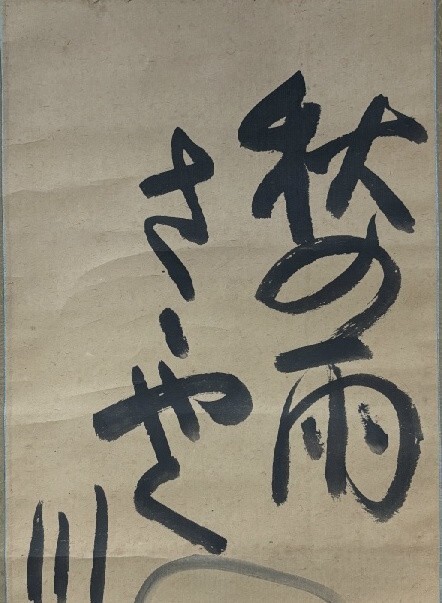 秋の雨
さゝやく
川